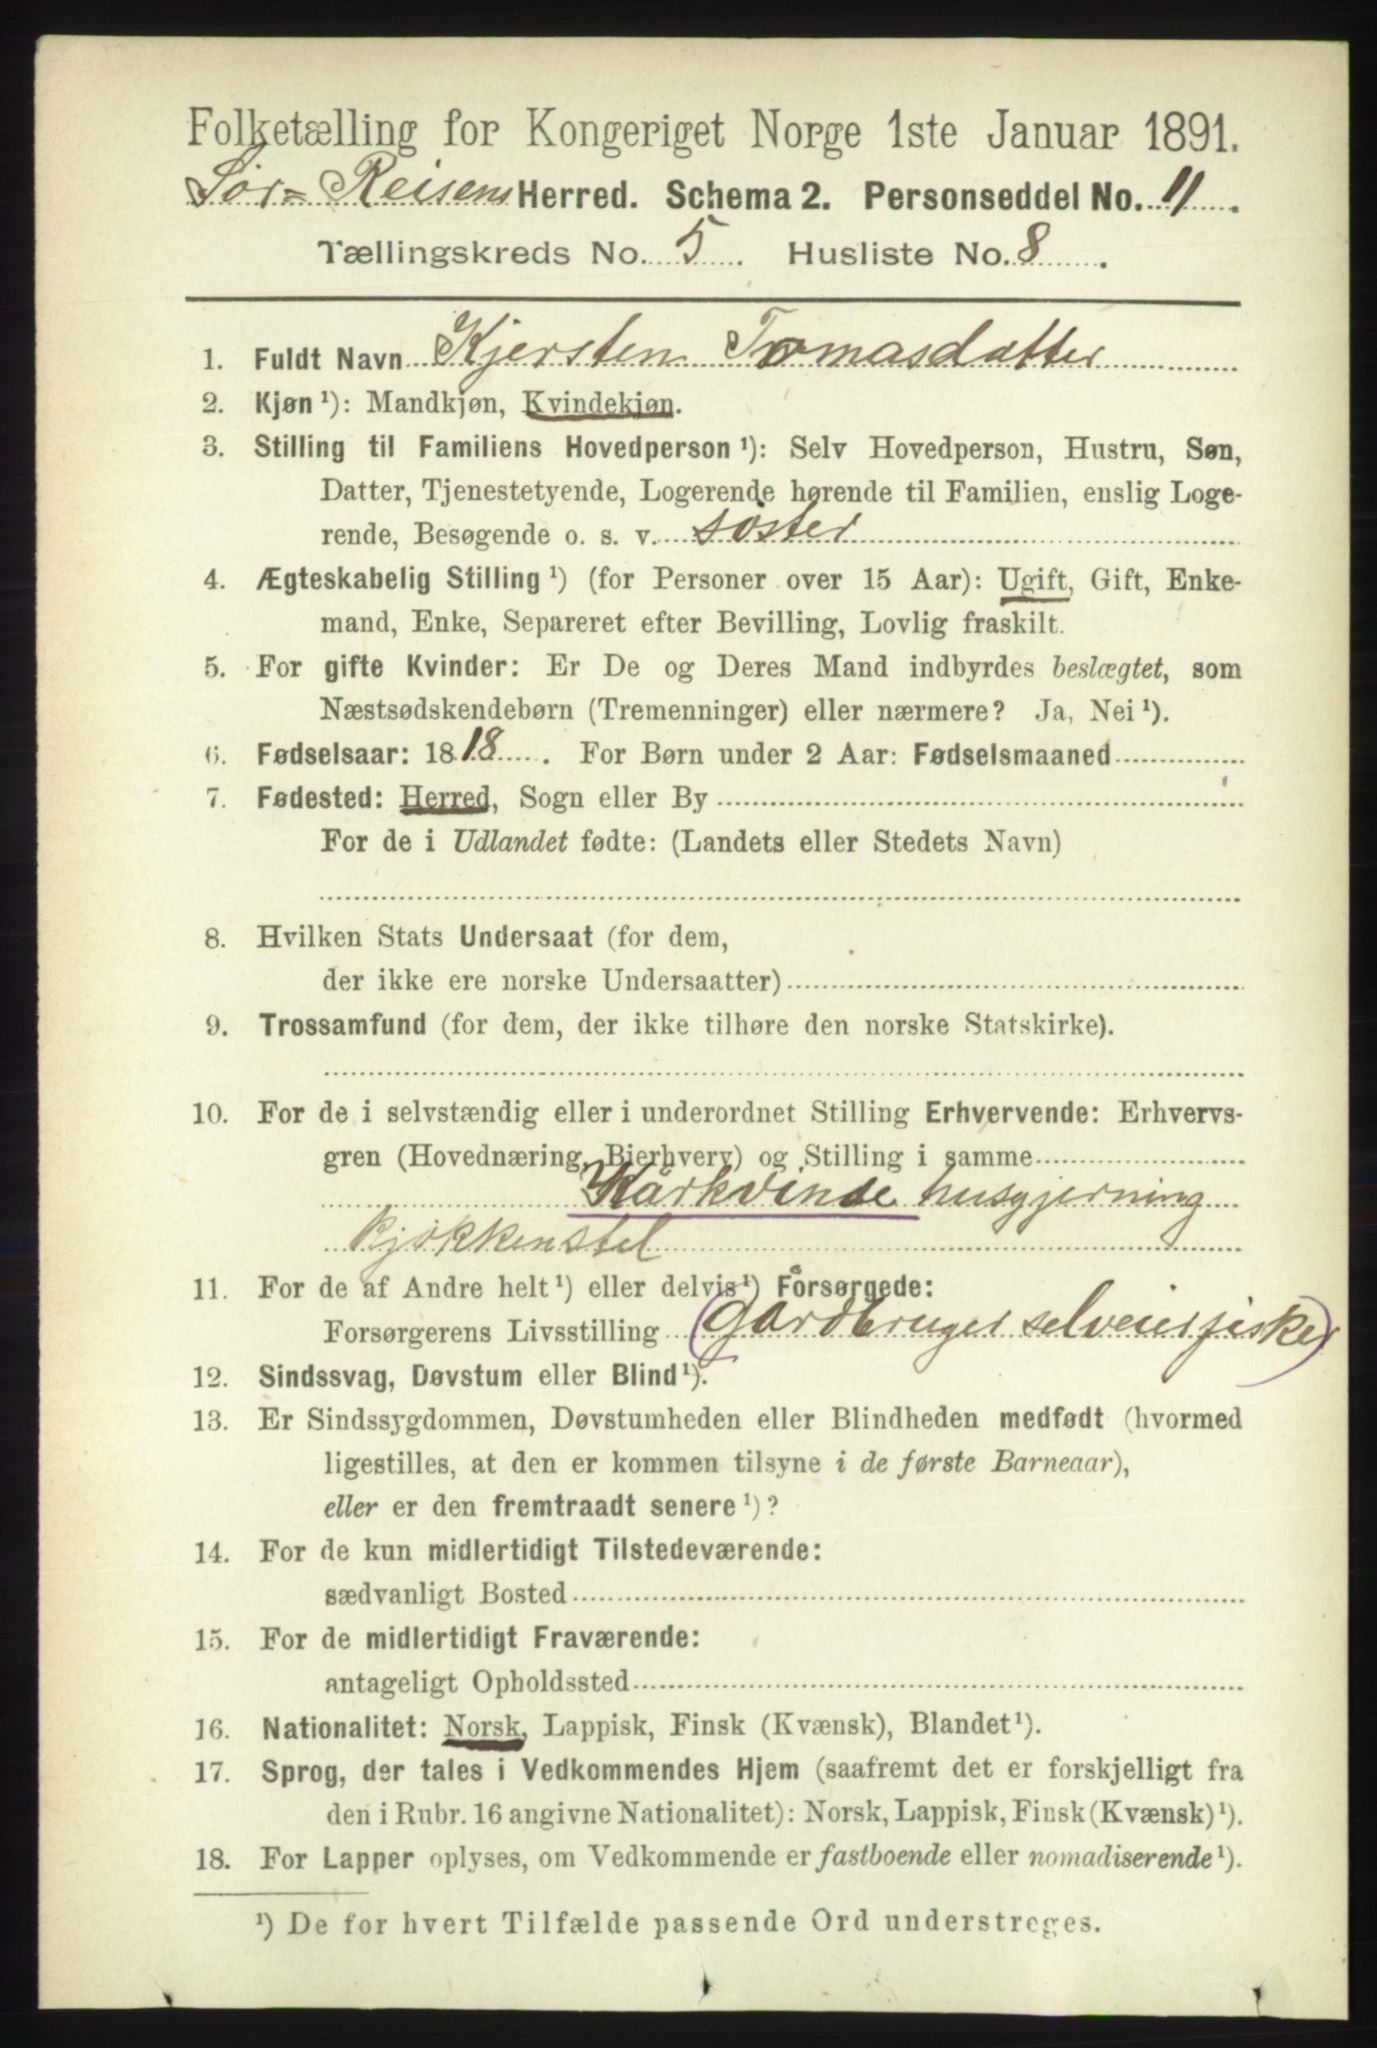 Folketælling for Kongeriget Norge 1ste Januar 1891.
Sør-Reisens Herred. Schema 2. Personseddel No. 11.
Tællingskreds No. 5. Husliste No. 8.
1. Fuldt Navn Kjersten Tomasdatter
2. Kjøn¹): Mandkjøn, Kvindekjøn.
3. Stilling til Familiens Hovedperson¹): Selv Hovedperson, Hustru, Søn,
Datter, Tjenestetyende, Logerende hørende til Familien, enslig Loge-
rende, Besøgende o. s. v. søster
4. Ægteskabelig Stilling¹) (for Personer over 15 Aar): Ugift, Gift, Enke-
mand, Enke, Separeret efter Bevilling, Lovlig fraskilt.
5. For gifte Kvinder: Er De og Deres Mand indbyrdes beslægtet, som
Næstsødskendebørn (Tremenninger) eller nærmere? Ja, Nei¹).
6. Fødselsaar: 1818. For Børn under 2 Aar: Fødselsmaaned
7. Fødested: Herred, Sogn eller By
For de i Udlandet fødte: (Landets eller Stedets Navn)
8. Hvilken Stats Undersaat (for dem,
der ikke ere norske Undersaatter)
9. Trossamfund (for dem, der ikke tilhøre den norske Statskirke).
10. For de i selvstændig eller i underordnet Stilling Erhvervende: Erhvervs-
gren (Hovednæring, Bierhverv) og Stilling i samme
Kårkvinde husgjerning
kjøkkenstel
11. For de af Andre helt¹) eller delvis¹) Forsørgede:
Forsørgerens Livsstilling (gårdbruger selveier fisker)
12. Sindssvag, Døvstum eller Blind¹).
13. Er Sindssygdommen, Døvstumheden eller Blindheden medfødt (hvormed
ligestilles, at den er kommen tilsyne i de første Barneaar),
eller er den fremtraadt senere¹)?
14. For de kun midlertidigt Tilstedeværende:
sædvanligt Bosted
15. For de midlertidigt Fraværende:
antageligt Opholdssted
16. Nationalitet: Norsk, Lappisk, Finsk (Kvænsk), Blandet¹).
17. Sprog, der tales i Vedkommendes Hjem (saafremt det er forskjelligt fra
den i Rubr. 16 angivne Nationalitet): Norsk, Lappisk, Finsk (Kvænsk)¹).
18. For Lapper oplyses, om Vedkommende er fastboende eller nomadiserende¹).
¹) De for hvert Tilfælde passende Ord understreges.